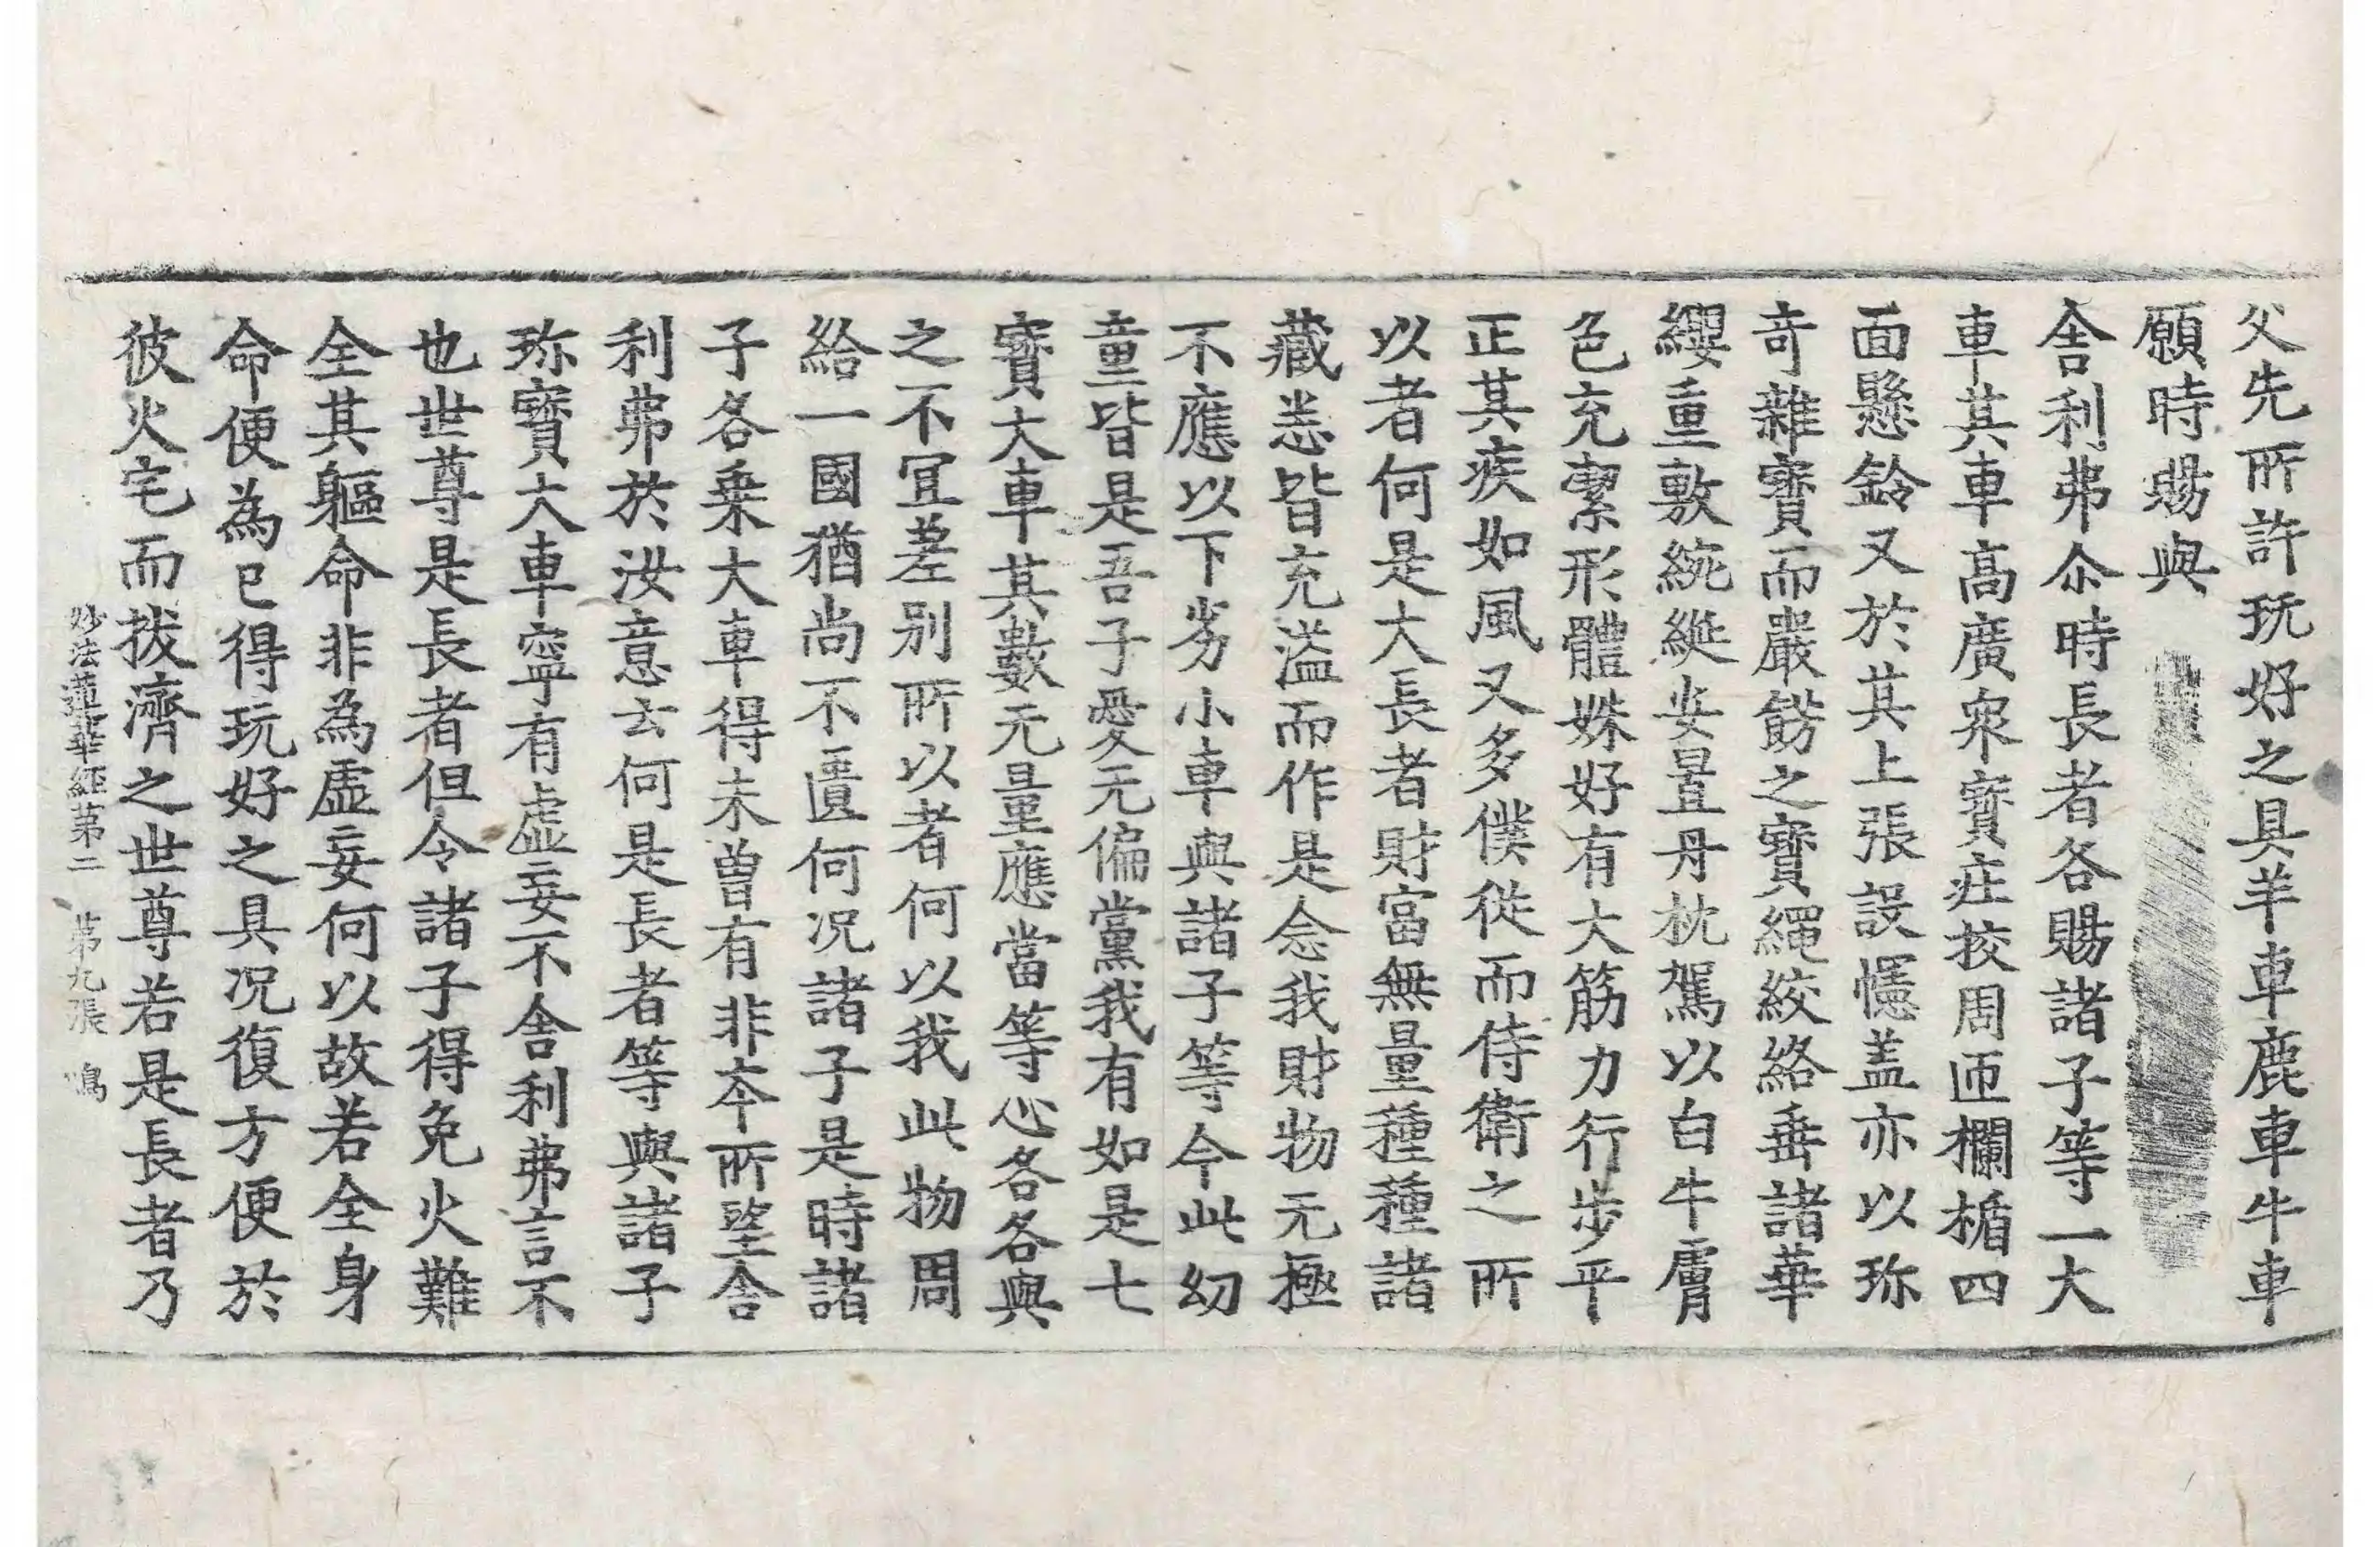 父先所許玩好之具羊車鹿車牛車
願時賜與
舎利弗尒時長者各賜諸子等一大
車其車高廣衆寳莊挍周迊欄楯四
面懸鈴又於其上張設幰盖亦以珎
奇雜寳而嚴餝之寳繩絞絡垂諸華
纓重敷綩綖安置丹枕駕以白牛膚
色充潔形體姝好有大筋力行步平
正其疾如風又多僕從而侍衛之所
以者何是大長者財富無量種種諸
藏悉皆充溢而作是念我財物无極
不應以下劣小車與諸子等今此幼
童皆是吾子愛无偏黨我有如是七
寳大車其數无量應當等心各各與
之不冝差别所以者何以我此物周
給一國猶尚不匱何况諸子是時諸
子各乗大車得未曾有非本所望舎
利弗於汝意云何是長者等與諸子
珎寳大車寧有虚妄不舎利弗言不
也世尊是長者但令諸子得免火難
全其軀命非為虚妄何以故若全身
命便為已得玩好之具况復方便於
彼火宅而拔濟之世尊若是長者乃
妙法蓮華經第二 第九張 鳴